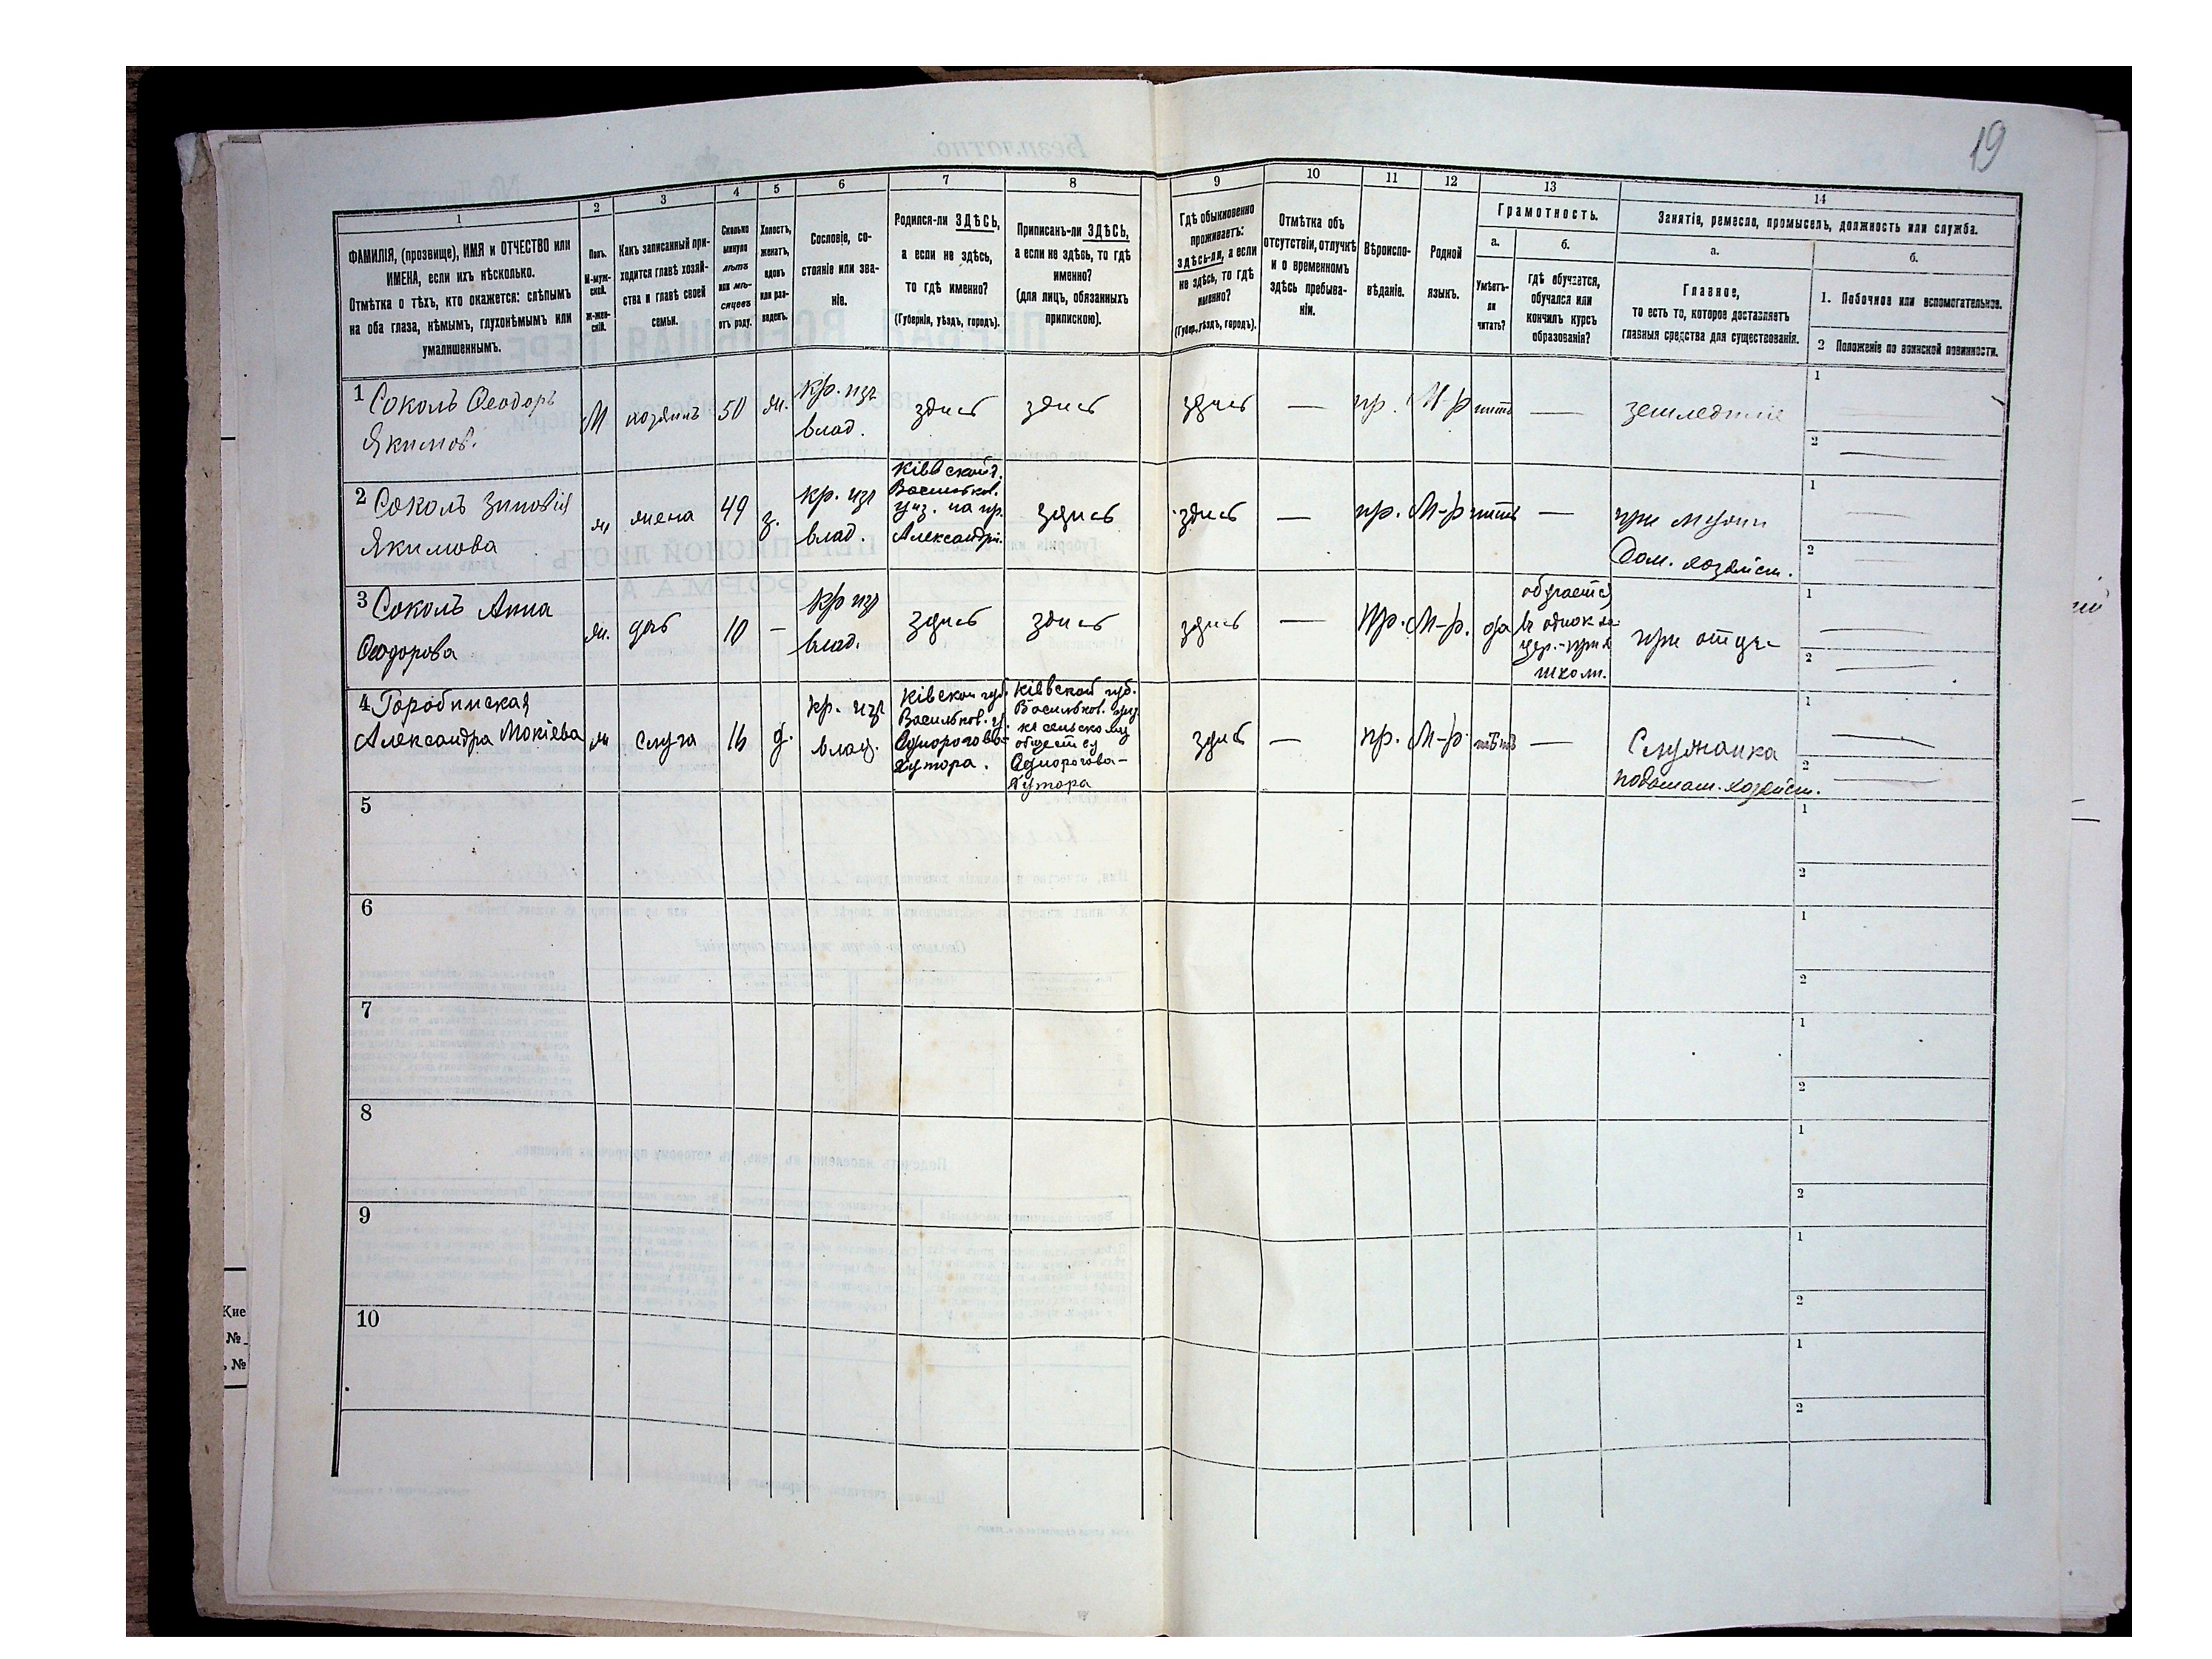 19
1
2
3
4
5
6
7
8
9
10
11
12
13
14
ФАМИЛІЯ, (прозвище), ИМЯ и ОТЧЕСТВО или
ИМЕНА, если ихъ нѣсколько.
Отмѣтка о тѣхъ, кто окажется: слѣпымъ
на оба глаза, нѣмымъ, глухонѣмымъ или
умалишеннымъ.
Полъ.
М-муж-
ской.
Ж-жен-
скій.
Какъ записанный при-
ходится главѣ хозяй-
ства и главѣ своей
семьи.
Сколько
минуло
лѣтъ
или мѣ-
сяцевъ
отъ роду.
Холостъ,
женатъ,
вдовъ
или раз-
веденъ.
Сословіе, со-
стояніе или зва-
ніе.
Родился-ли ЗДѢСЬ,
а если не здѣсь,
то гдѣ именно?
(Губернія, уѣздъ, городъ).
Приписанъ-ли ЗДѢСЬ,
а если не здѣсь, то гдѣ
именно?
(для лицъ, обязанныхъ
припискою).
Гдѣ обыкновенно
проживаетъ:
здѣсь-ли, а если
не здѣсь, то гдѣ
именно?
(Губер., уѣздъ, городъ).
Отмѣтка объ
отсутствіи, отлучкѣ
и о временномъ
здѣсь пребыва-
ніи.
Вѣроиспо-
вѣданіе.
Родной
языкъ.
Грамотность.
а.
Умѣетъ-
ли
читать?
б.
гдѣ обучается,
обучался или
кончилъ курсъ
образованія?
Занятія, ремесло, промыселъ, должность или служба.
а.
Главное,
то есть то, которое доставляетъ
главныя средства для существованія.
б.
1. Побочное или вспомогательное.
2 Положеніе по воинской повинности.
1 Соколъ Ѳеодоръ
Якимов.
М
хозяинъ
50
ж.
кр. изъ
влад.
здѣсь
здѣсь
здѣсь
—
пр.
М-р
нѣтъ
—
земледѣліе
1
2
2 Соколъ Зиновія
Якимова
ж
жена
49
з.
кр. изъ
влад.
Кіевской г.
Васильков.
уѣз.
здѣсь
здѣсь
—
пр.
М-р
нѣтъ
—
при мужѣ
дом. хозяйст.
1
2
3 Соколъ Анна
Ѳеодорова
ж.
дочь
10
—
кр изъ
влад.
здѣсь
здѣсь
здѣсь
—
Пр.
М-р.
да
обучается
въ однокла-
цер.-прих
школѣ.
при отцѣ
1
2
4 Горобинская
Александра Мокіева
ж
слуга
16
д.
кр. изъ
влад.
Кіевской губ.
Васильков. у.
Однорогова-
Хутора.
Кіевской губ.
Васильков. уѣз.
къ сельскому
обществу
Однорогова-
Хутора
здѣсь
—
пр.
М-р.
нѣтъ
—
Служанка
по домаш. хозяйст.
1
2
5
1
2
6
1
2
7
1
2
8
1
2
9
1
2
10
1
2
Кие
№
№